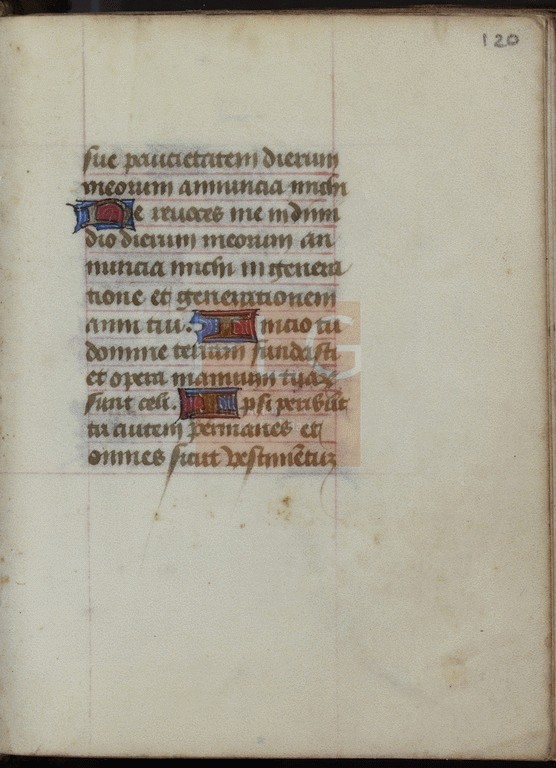 120
sue paucitatem dierum
meorum annuncia michi
Ne reuoces me in dimi
dio dierum meorum an
nuncia michi in genera
tione et generationem
anni tui. Inicio tu
domine terram fundasti
et opera manuum tuaꝝ
sunt celi. Ipsi peribūt
tu autem permanes et
omnes sicut vestimētuꝫ